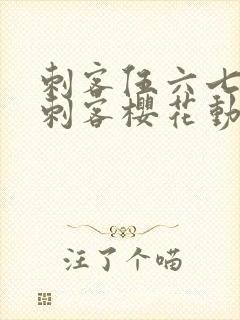 刺客伍六七
刺客樱花动
注了个喵